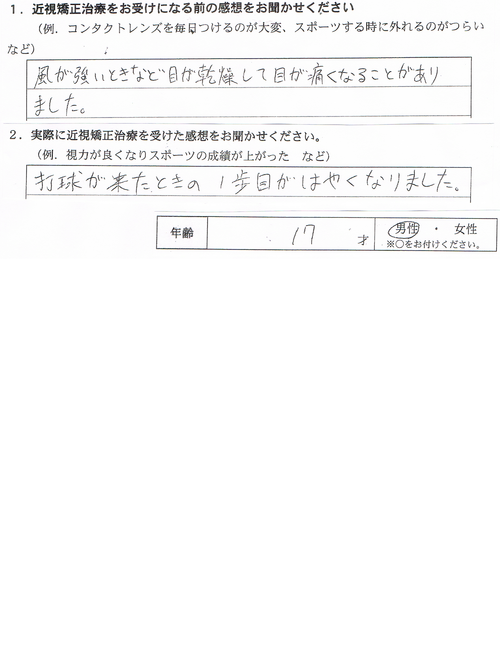 1．近視矯正治療をお受けになる前の感想をお聞かせください
（例．コンタクトレンズを毎日つけるのが大変、スポーツする時に外れるのがつらい
など）
風が強いときなど目が乾燥して目が痛くなることがあり
ました。
2．実際に近視矯正治療を受けた感想をお聞かせください。
（例．視力が良くなりスポーツの成績が上がった　など）
打球が来たときの1歩目がはやくなりました。
年齢　17　才　男性・女性
※○をお付けください。